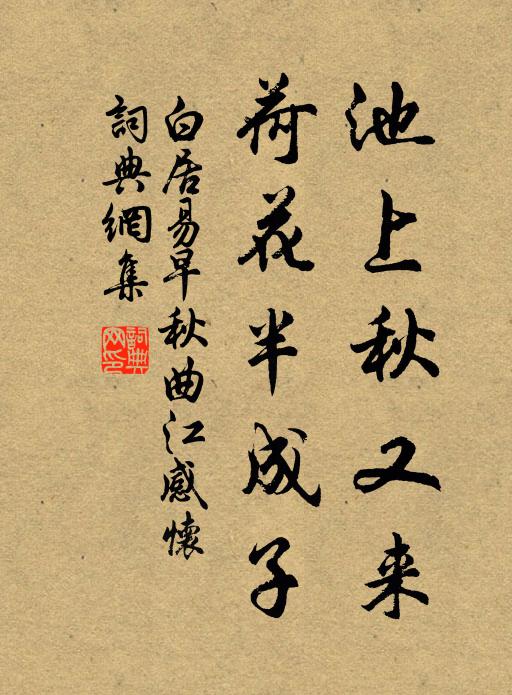 池上秋又来
荷花半成子
白居易早秋曲江感懷
詞典網集
詞典网印